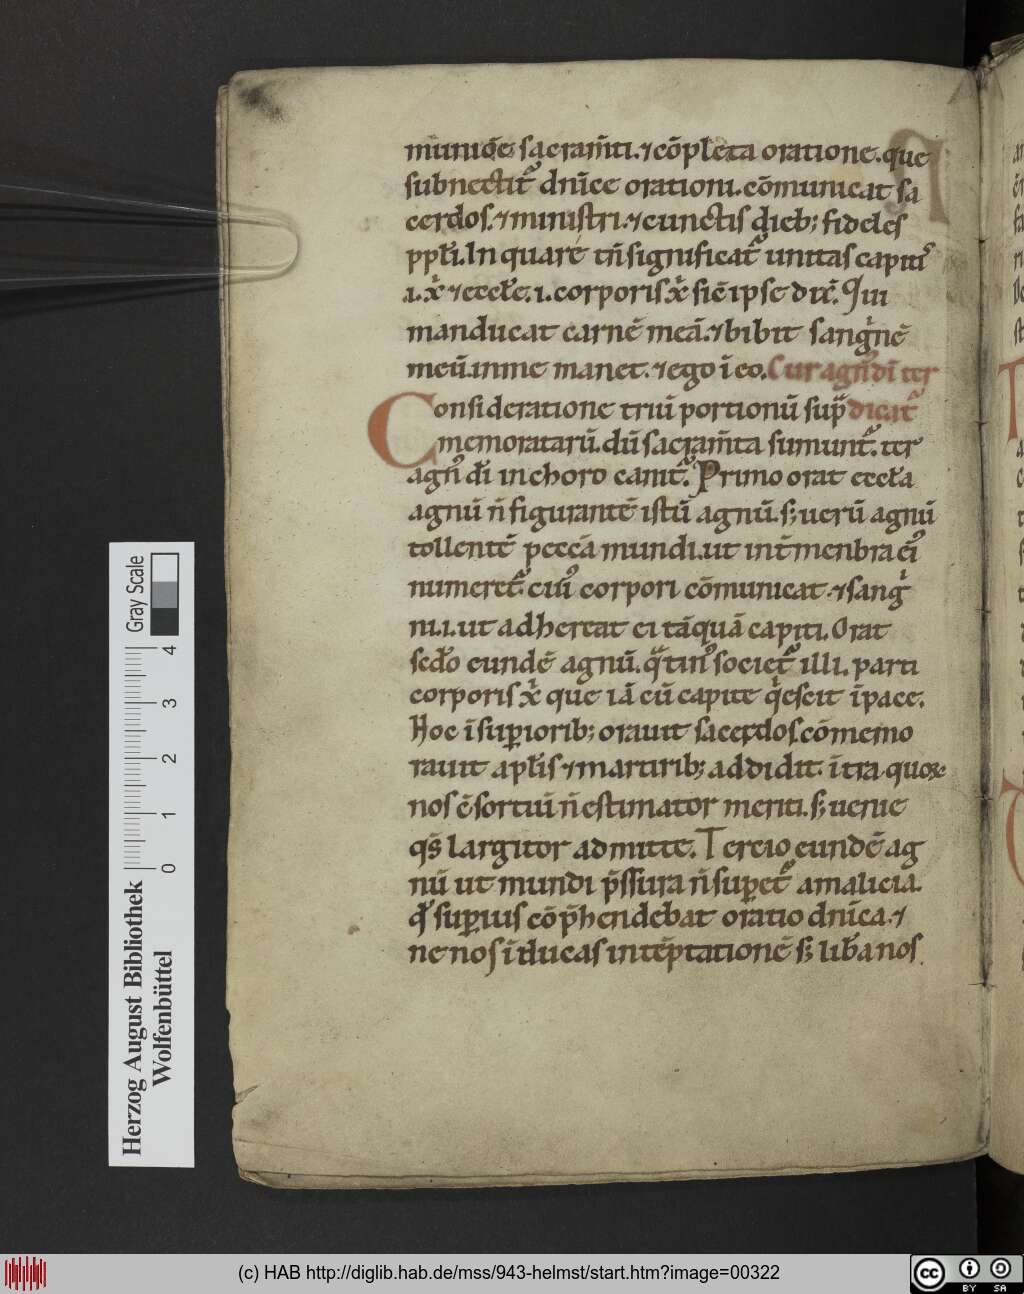 muniōe sacram̄ti. ⁊ cōpleta oratione. que
subnectit᷑ dnīce orationi. cōmunicat sa
cerdos. ⁊ miniſtri. ⁊ cunctis dieb; fideles
ppłi. In quare tn̄ significat᷑ unitas capitꝰ
.i. xp̄i ⁊ eccłe. i. corporis xp̄i sic̄ ipse dix̄. Qui
manducat carnē meā. ⁊ bibit sangⁱnē
meū. in me manet. ⁊ ego ī eo. Cur agn̄ dī ter
Consideratione triū portionū sup̄ dicat᷑
memoratarū. dū sacram̄ta sumunt᷑. ter
agnꝰ dī in choro canit᷑. Primo orat eccła
agnū n̄ figurantē istū agnū. s; uerū agnū
tollentē peccā mundi. ut int̄ menbra eiꝰ
numeret᷑. cuiꝰ corpori cōmunicat. ⁊ sangⁱ
ni. i. ut adhereat ei tāquā capiti. Orat
scd̄o eundē agnū. qͣtinꝰ societ᷑ illi. parti
corporis xp̄i que iā cū capite qⁱescit ī pace.
Hoc ī supiorib; orauit sacerdos cōmemo
rauit apłis ⁊ martirib; addidit. īt̄ra quoꝝ
nos c̄sortiū n̄ estimator meriti. s; uenie
qs̄ largitor admitte. Tercio eundē ag
nū ut mundi p̄ssura n̄ supet᷑ a malicia.
qđ supius cōp̄hendebat oratio dnīca. ⁊
ne nos īducas in tēptationē s; liba nos.
Herzog August Bibliothek
Wolfenbüttel
Gray Scale
0 1 2 3 4
(c) HAB http://diglib.hab.de/mss/943-helmst/start.htm?image=00322
cc BY SA